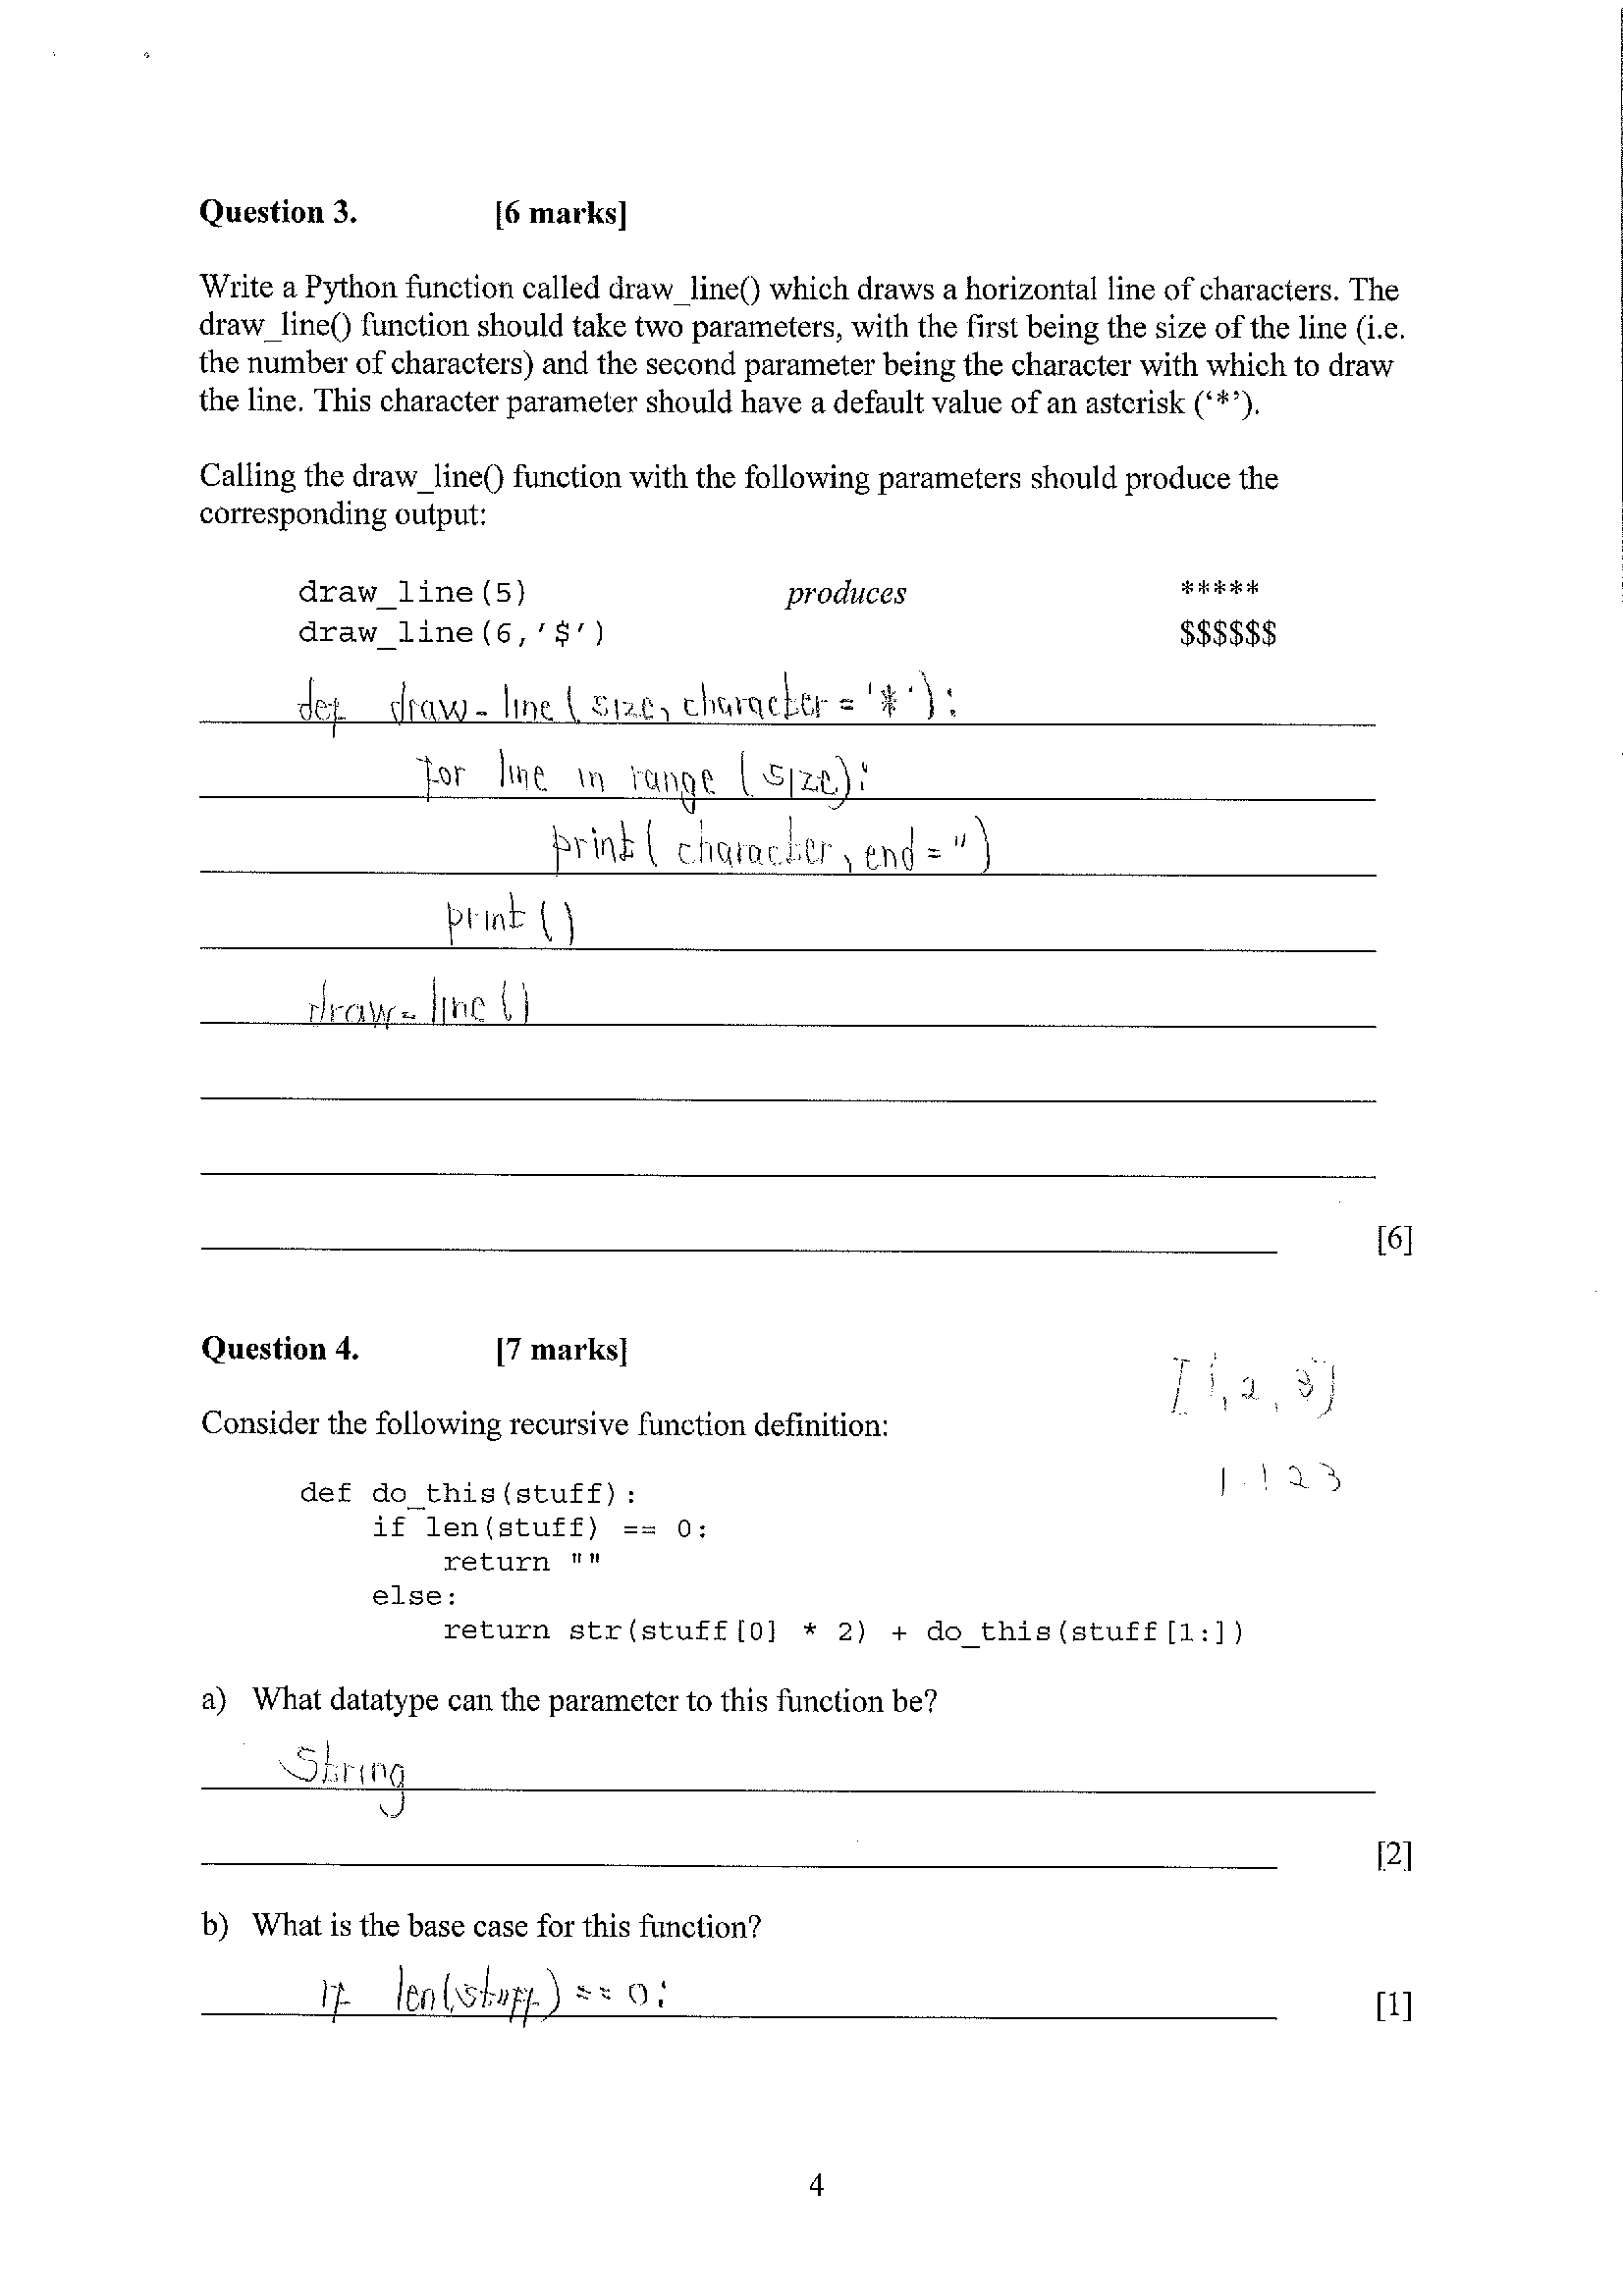 Question 3. [6 marks]
Write a Python function called draw_line() which draws a horizontal line of characters. The
draw_line() function should take two parameters, with the first being the size of the line (i.e.
the number of characters) and the second parameter being the character with which to draw
the line. This character parameter should have a default value of an asterisk (‘*’).
Calling the draw_line() function with the following parameters should produce the
corresponding output:
draw_line(5) produces *****
draw_line(6,'$') $$$$$$
def draw_line(size, character = '*'):
for line in range (size):
print( character, end = '')
print ()
draw_line()
[6]
Question 4. [7 marks]
[1, 2, 3]
Consider the following recursive function definition:
def do_this(stuff):
if len(stuff) == 0:
return ""
else:
return str(stuff[0] * 2) + do_this(stuff[1:])
a) What datatype can the parameter to this function be?
String
[2]
b) What is the base case for this function?
if len(stuff) == 0: [1]
4